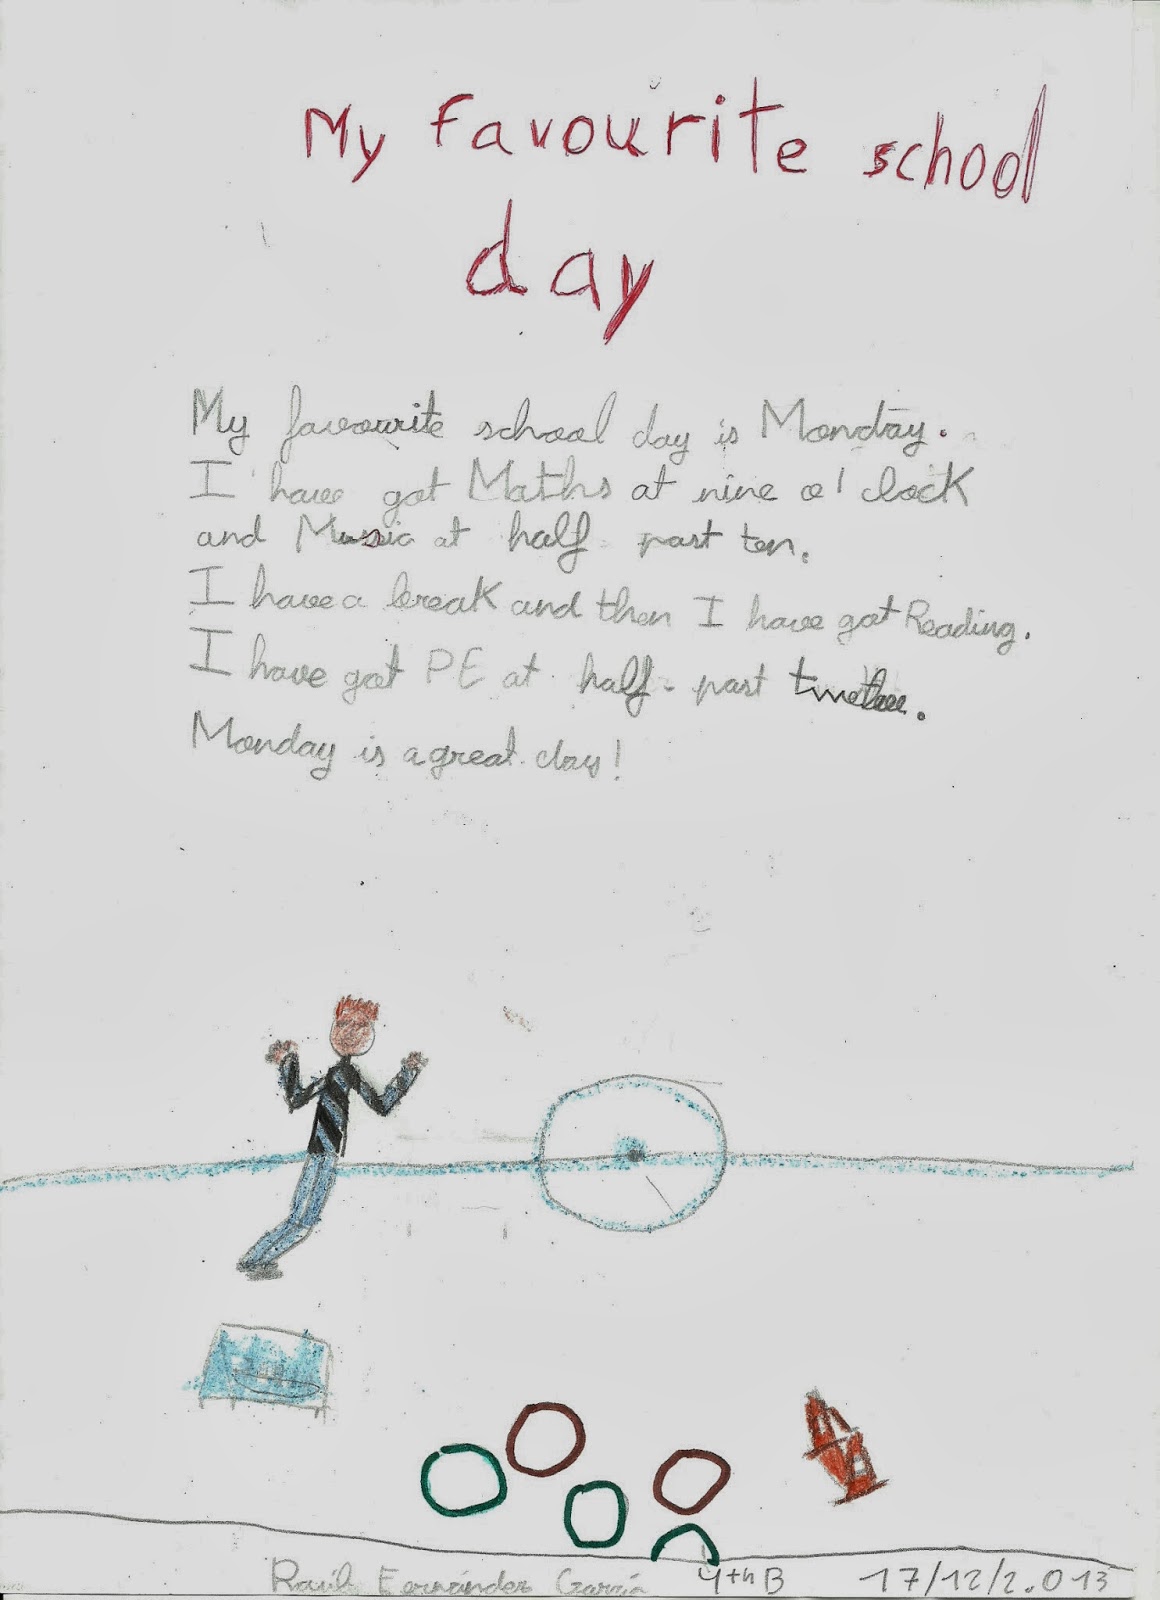 My favourite school
day
My favourite school day is Monday.
I have got Maths at nine o'clock
and Music at half-past ten.
I have a break and then I have got Reading.
I have got PE at half-past twelve.
Monday is a great day!
Raúl Fernández García 4th B 17/12/2.013